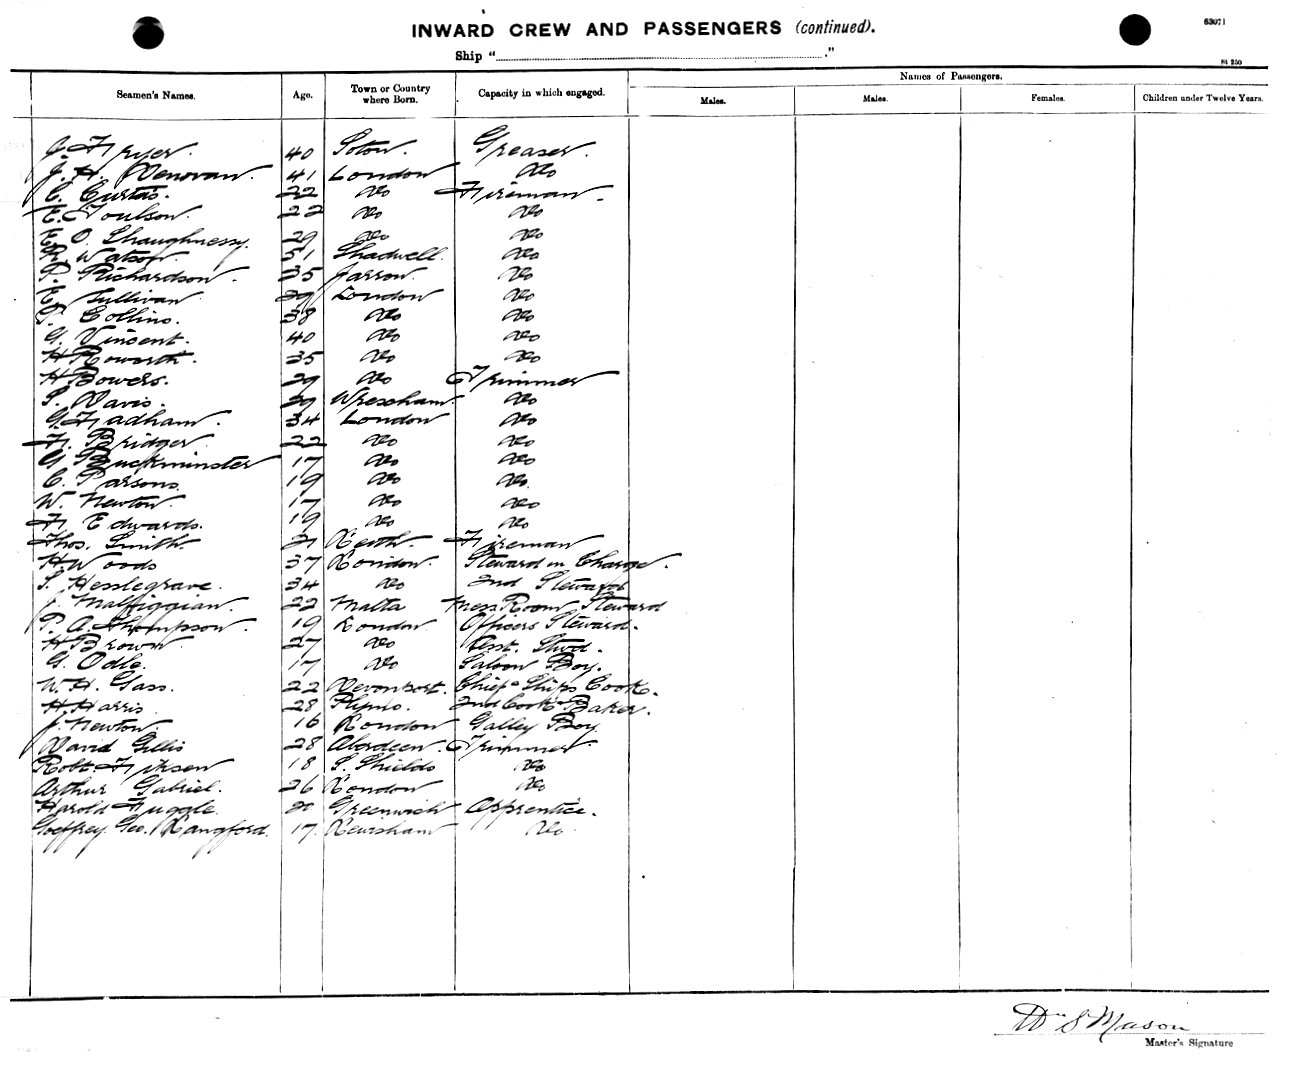 INWARD CREW AND PASSENGERS (continued).
63071
Ship "....."
84 250
Seamen's Names. Age. Town or Country where Born. Capacity in which engaged. Names of Passengers.
Males. Males. Females. Children under Twelve Years.
J. Fryer. 40 Soton. Greaser.
J. H. Donovan. 41 London Do
C. Curtis. 22 Do Fireman.
E. Foulson. 22 Do Do
E. O. Shaughnessy. 29 Do Do
R. Watson. 51 Shadwell. Do
P. Richardson. 35 Jarrow. Do
E. Sullivan 29 London Do
P. Collins. 38 Do Do
G. Vincent. 40 Do Do
H Roworth. 35 Do Do
H Bowers. 29 Do Trimmer
S. Davis. 29 Wrexham. Do
G. Fadham. 34 London Do
F. Bridger. 22 Do Do
G Buckminster 17 Do Do
C. Parsons. 19 Do Do
W. Newton. 17 Do Do
F. Edwards. 19 Do Do
Thos. Smith. 21 Leith. Fireman
H Woods 37 London. Steward in Charge.
S. Hesslegrave. 34 Do 2nd Steward
J. Malfiggian. 22 Malta Mess Room Steward
P. A. Thompson. 19 London. Officers Steward.
H Brown 27 Do Asst. Stwd.
G. Odle. 17 Do Saloon Boy.
W. H. Gass. 22 Devonport. Chief Ships Cook.
H. Harris 28 Plymo. 2nd Cook Baker.
J. Newton. 16 London Galley Boy.
David Gillis 28 Aberdeen. Trimmer.
Robt. 18 S. Shields Do
Arthur Gabriel. 26 London Do
Harold Fuggle. Greenwich Apprentice.
Geoffrey Geo. Langford. 17. Lewisham Do.
Wm S Mason
Master's Signature